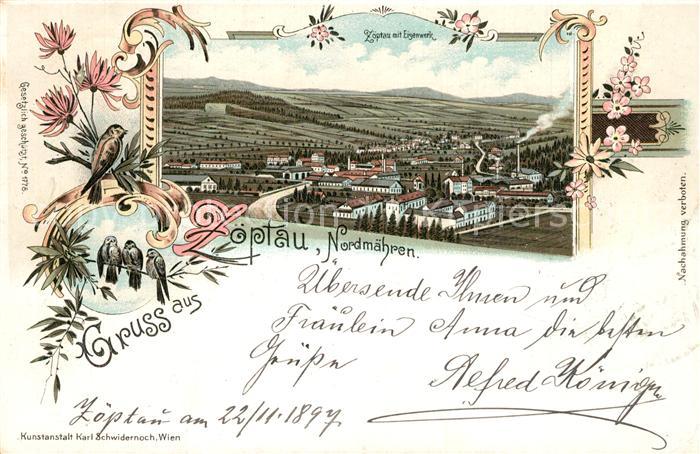 Zöptau mit Eisenwerk.
Gesetzlich geschützt, No 1776.
Nachahmung verboten.
Gruss aus
Zöptau, Nordmähren.
Übersende Ihnen und
Fräulein Anna die besten
Grüße
Alfred König
Zöptau am 22/11. 1897
Kunstanstalt Karl Schwidernoch, Wien